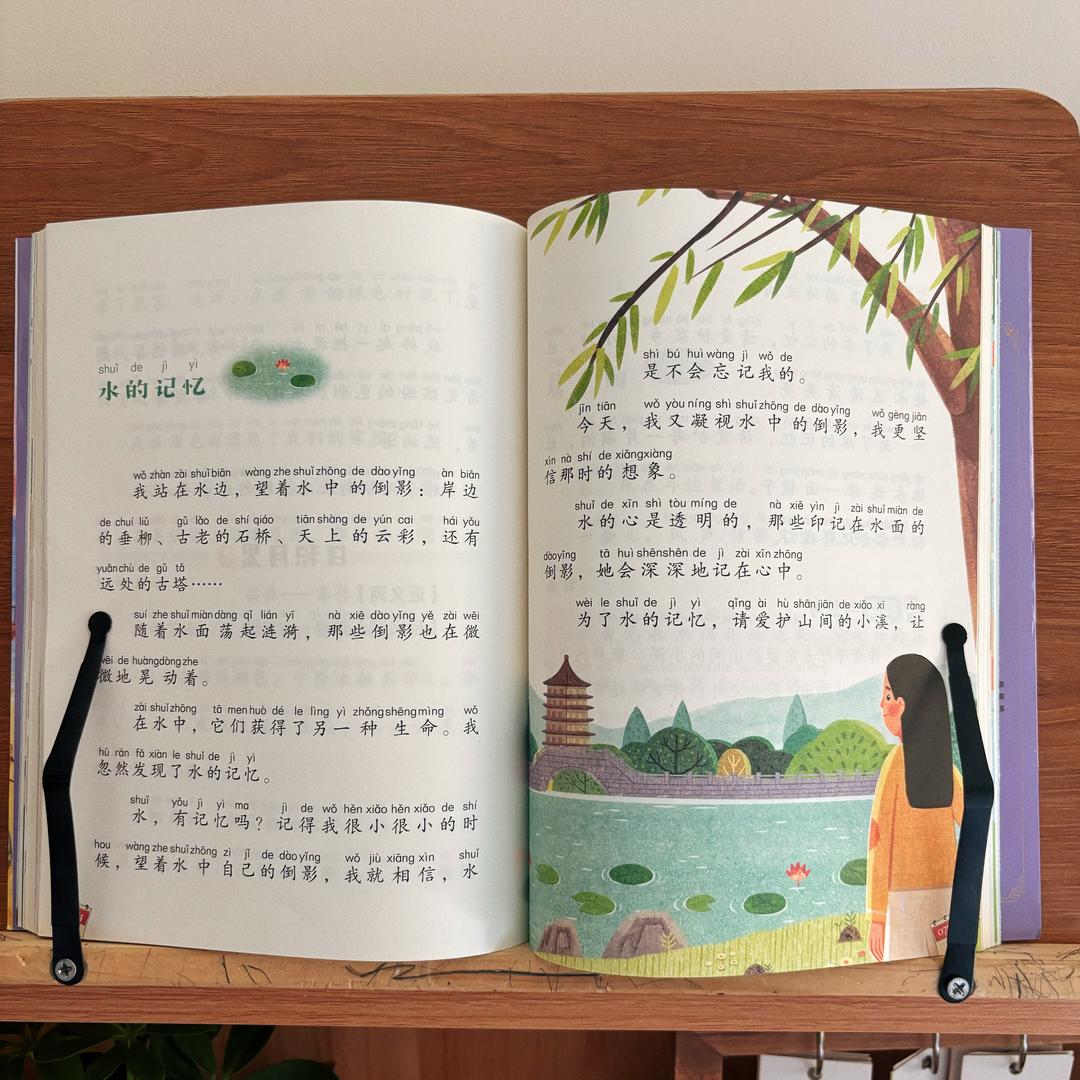 shuǐ de jì yì
水的记忆
wǒ zhàn zài shuǐ biān wàng zhe shuǐ zhōng de dào yǐng àn biān
我站在水边，望着水中的倒影：岸边
de chuí liǔ gǔ lǎo de shí qiáo tiān shàng de yún cai hái yǒu
的垂柳、古老的石桥、天上的云彩，还有
yuǎn chù de gǔ tǎ
远处的古塔……
suí zhe shuǐ miàn dàng qǐ lián yī nà xiē dào yǐng yě zài wēi
随着水面荡起涟漪，那些倒影也在微
wēi de huàng dòng zhe
微地晃动着。
zài shuǐ zhōng tā men huò dé le lìng yì zhǒng shēng mìng wǒ
在水中，它们获得了另一种生命。我
hū rán fā xiàn le shuǐ de jì yì
忽然发现了水的记忆。
shuǐ yǒu jì yì ma jì de wǒ hěn xiǎo hěn xiǎo de shí
水，有记忆吗？记得我很小很小的时
hou wàng zhe shuǐ zhōng zì jǐ de dào yǐng wǒ jiù xiāng xìn shuǐ
候，望着水中自己的倒影，我就相信，水
shì bú huì wàng jì wǒ de
是不会忘记我的。
jīn tiān wǒ yòu níng shì shuǐ zhōng de dào yǐng wǒ gèng jiān
今天，我又凝视水中的倒影，我更坚
xìn nà shí de xiǎng xiàng
信那时的想象。
shuǐ de xīn shì tòu míng de nà xiē yìn jì zài shuǐ miàn de
水的心是透明的，那些印记在水面的
dào yǐng tā huì shēn shēn de jì zài xīn zhōng
倒影，她会深深地记在心中。
wèi le shuǐ de jì yì qǐng ài hù shān jiān de xiǎo xī ràng
为了水的记忆，请爱护山间的小溪，让